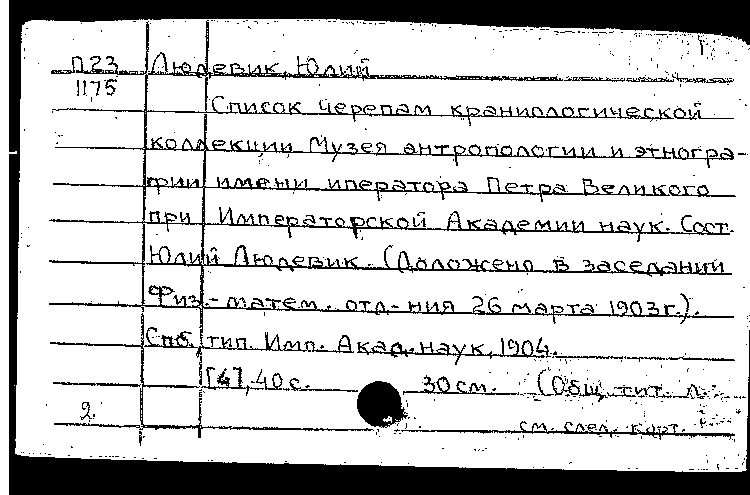 П23 Людевик, Юлий
1175
Список черепам краниологической
коллекции Музея антропологии и этногра-
фии имени иператора Петра Великого
при Императорской Академии наук. Сост.
Юлий Людевик. (Доложено в заседании
Физ.-матем. отд-ния 26 марта 1903 г.).
Спб. тип. Имп. Акад. наук, 1904.
[4], 40 с. 30 см. (Общ. тит. л.
2. см. след. карт.